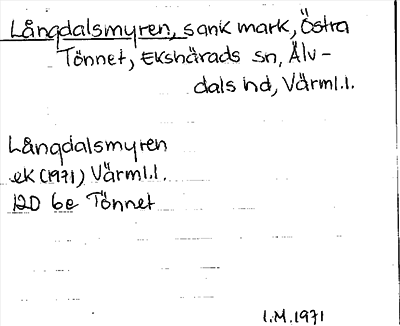 Långdalsmyren, sank mark, Östra
Tönnet, Ekshärads sn, Älv-
dals hd, Värml.l.
Långdalsmyren
ek (1971) Värml.l.
12D 6e Tönnet
I.M. 1971